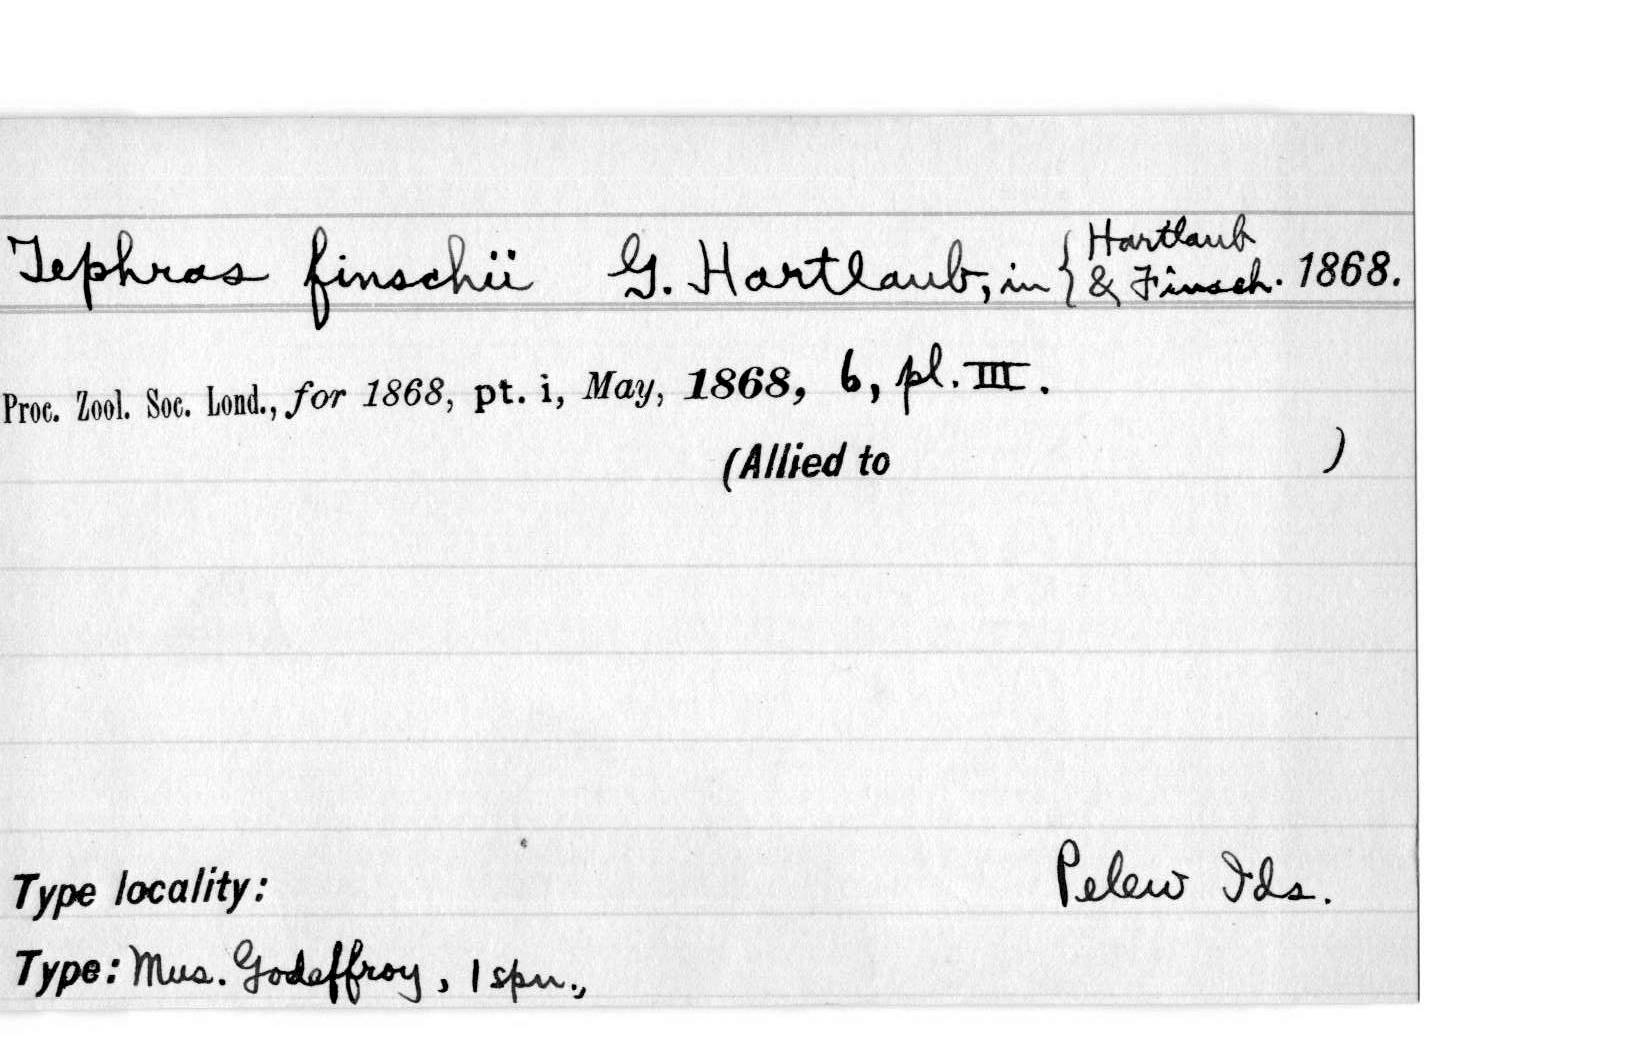 Tephras finschii G. Hartlaub, in { Hartlaub & Finsch. 1868.
Proc. Zool. Soc. Lond., for 1868, pt. i, May, 1868, 6, pl. III.
(Allied to )
Type locality: Pelew Ids.
Type: Mus. Godeffroy, 1 spn.,